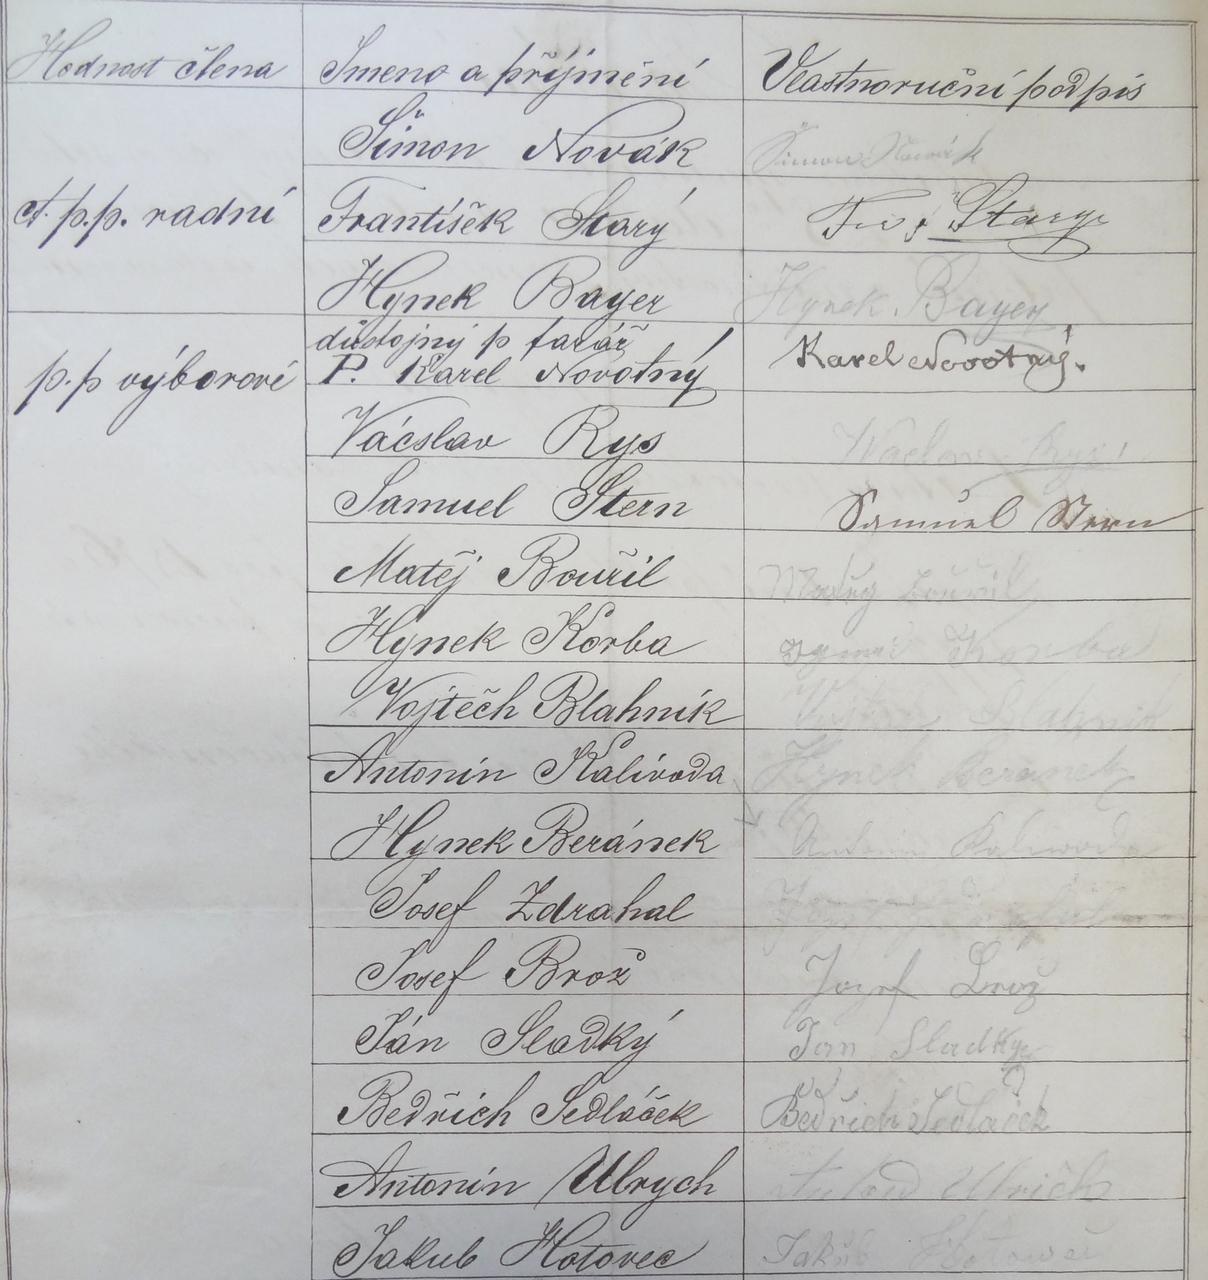 Hodnost člena Jmeno a příjmění Vlastnoruční podpis
Šimon Novák Šimon Novák
ct. p.p. radní František Starý Starý
Hynek Bayer Hynek Bayer
důstojný p farář
p.p výborové P. Karel Novotný Karel Novotný.
Václav Rys Waclav Rys
Samuel Stern Samuel Stern
Matěj Bouřil Bouřil
Hynek Korba Korba
Vojtěch Blahník Blahnik
Antonín Kalivoda Hynek Beranek
Hynek Beránek Antonin Kaliwoda
Josef Zdrahal
Josef Brož Jozef Brož
Ján Sladký Jan Sladky
Bedřich Sedláček Bedřich Sedláček
Antonín Ulrych Ulrich
Jakub Hotovec Jakub